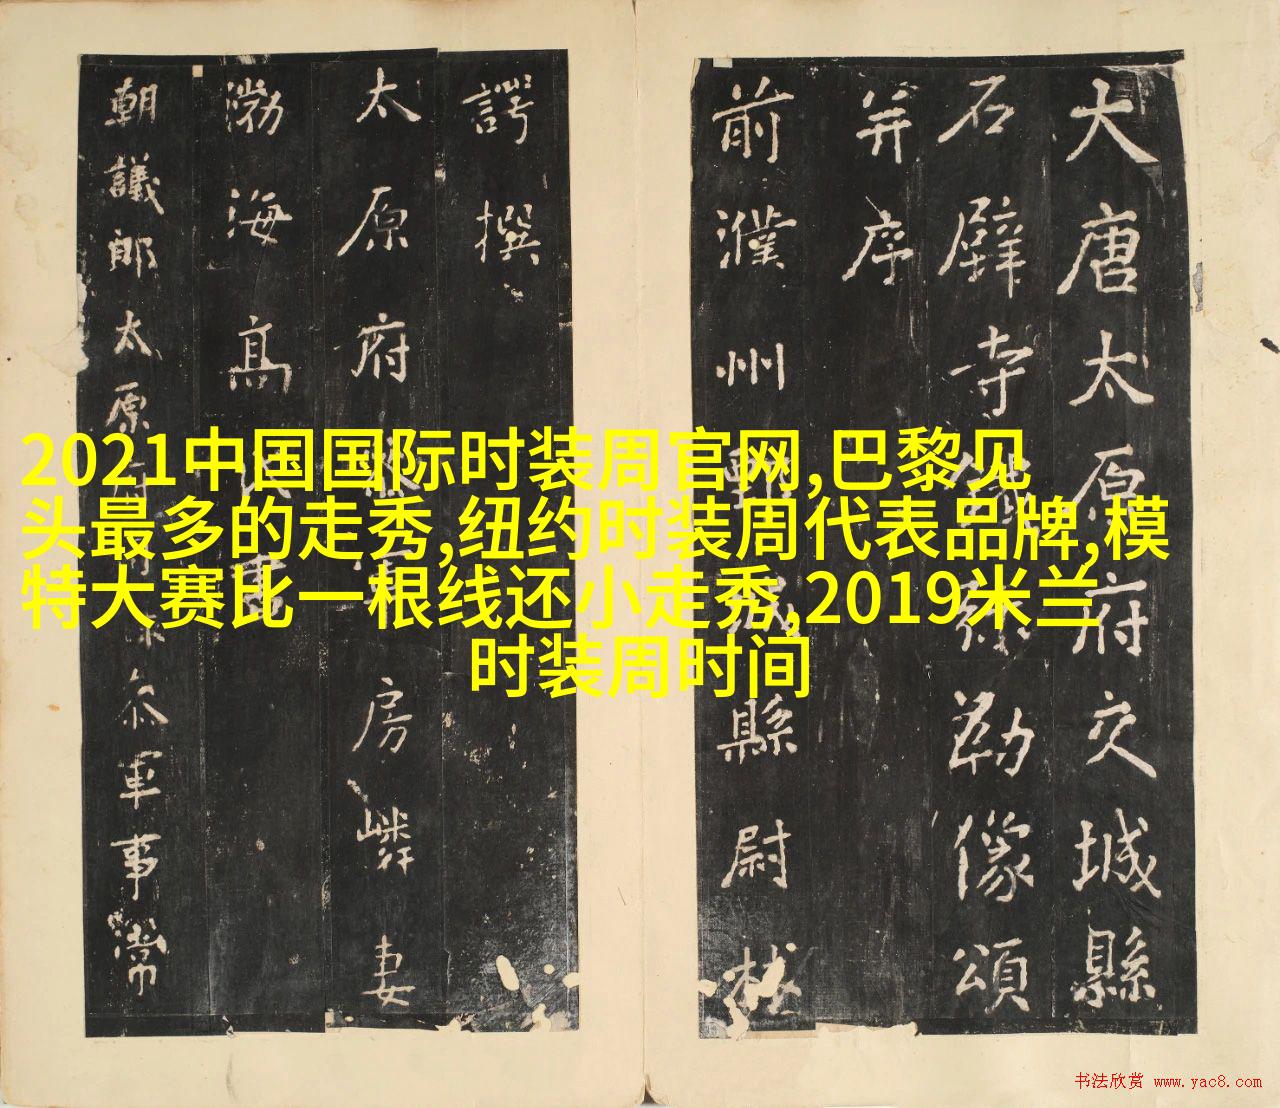 大唐太原府交城縣
石壁寺鐵彌勒像頌
并序
前濮州鄄城縣尉林
諤撰
太原府房嶙妻
渤海高
朝議郎太原府參軍事常
2021中国国际时装周官网,巴黎见
头最多的走秀,纽约时装周代表品牌,模
特大赛比一根线还小走秀,2019米兰
时装周时间
书法欣赏 www.yac8.com